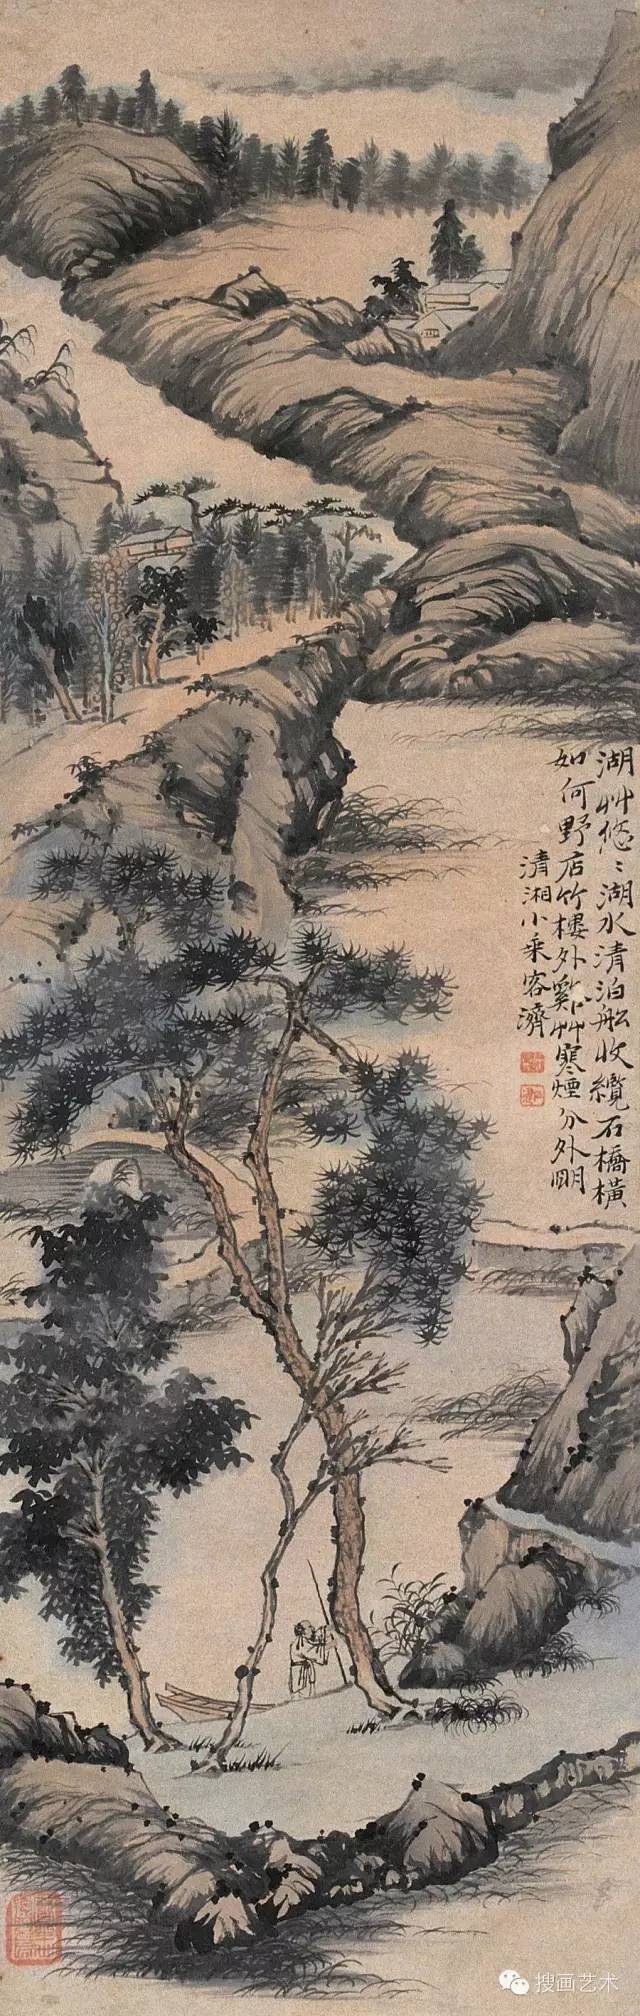 湖艸悠〻湖水清泊船收纜石橋橫
如何野店竹樓外奚艸寒煙分外朙
清湘小乘客濟
搜画艺术